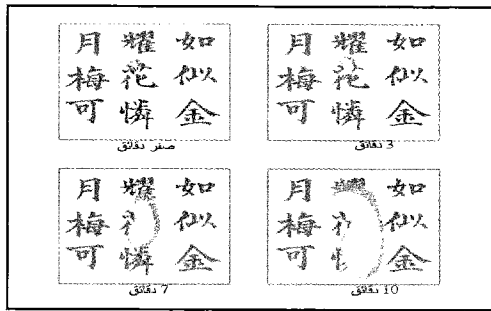 月 耀 如
梅 花 似
可 憐 金
صفر دقائق
月 耀 如
梅 花 似
可 憐 金
3 دقائق
月 耀 如
梅 似
可 憐 金
7 دقائق
月 耀 如
梅 似
可 金
10 دقائق